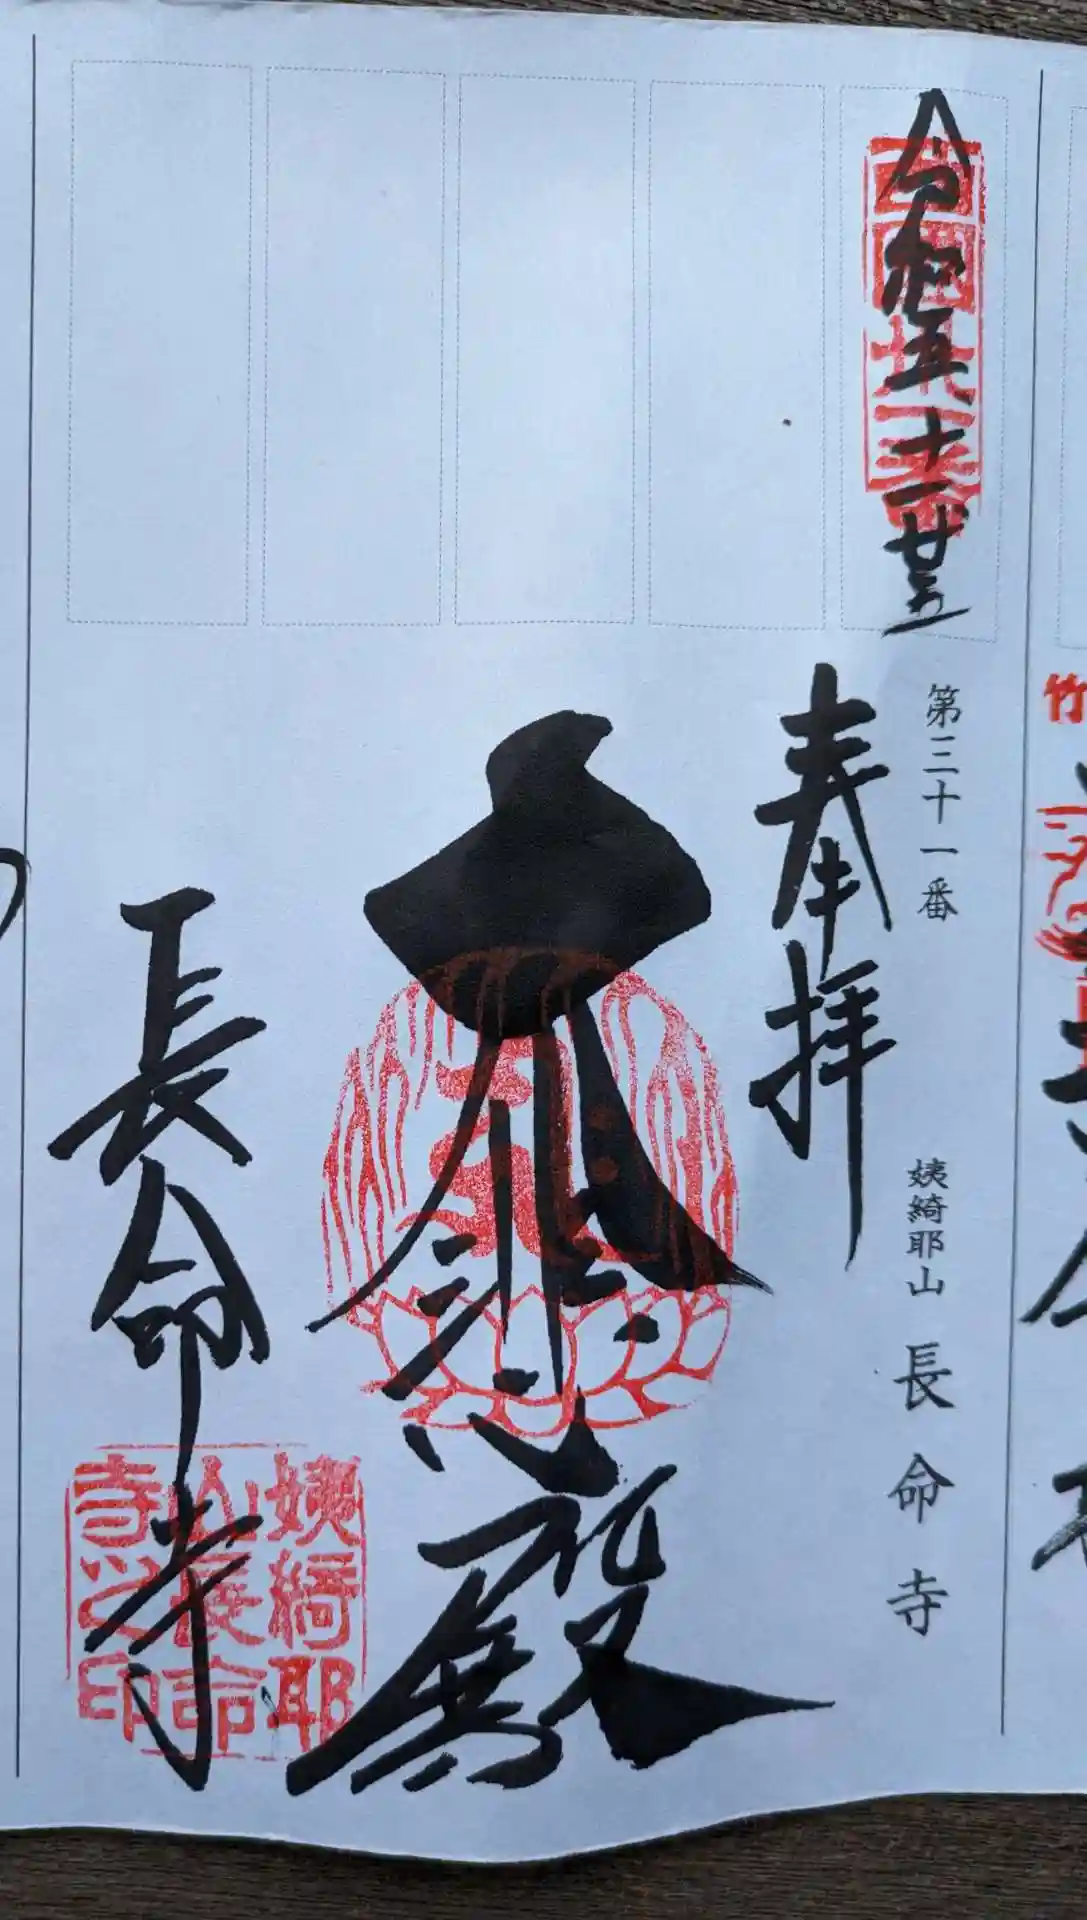 令和五、十一、廿三
西国卅一番
第三十一番
姨綺耶山 長命寺
奉拝
大悲殿
長命寺
姨綺耶
山長命
寺之印
竹